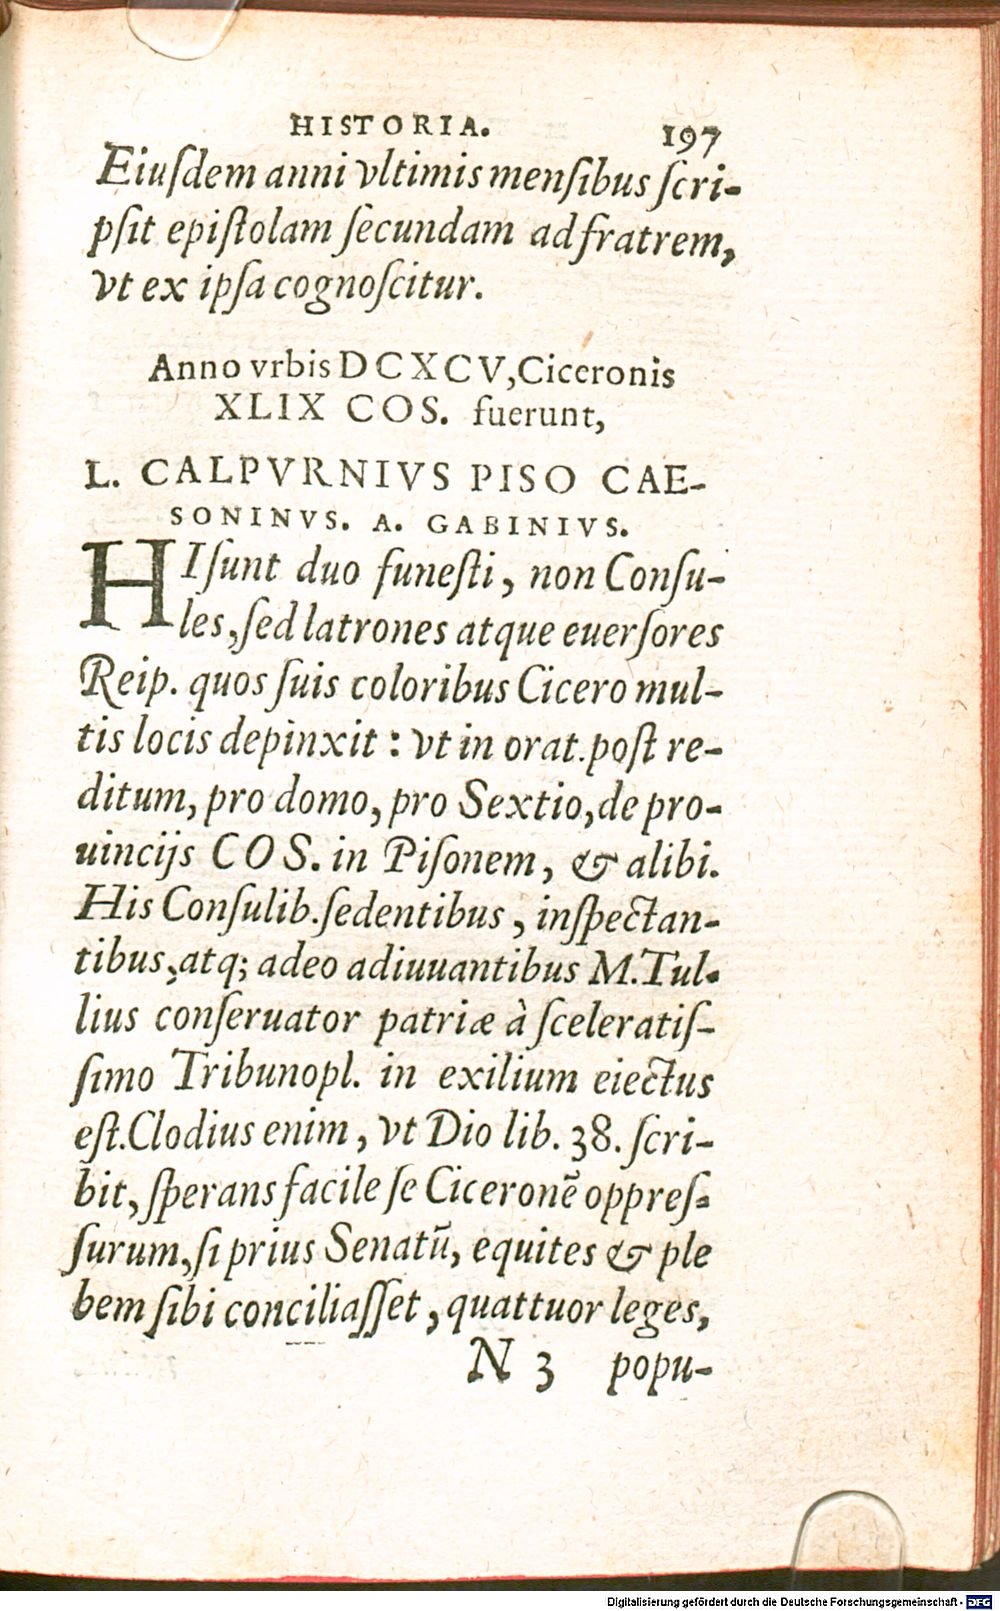 HISTORIA. 197
Eiuſdem anni vltimis menſibus ſcri-
pſit epiſtolam ſecundam ad fratrem,
vt ex ipſa cognoſcitur.
Anno vrbis DCXCV, Ciceronis
XLIX COS. fuerunt,
L. CALPVRNIVS PISO CAE-
SONINVS. A. GABINIVS.
HI ſunt duo funeſti, non Conſu-
les, ſed latrones atque euerſores
Reip. quos ſuis coloribus Cicero mul-
tis locis depinxit: vt in orat. poſt re-
ditum, pro domo, pro Sextio, de pro-
uincijs COS. in Piſonem, & alibi.
His Conſulib. ſedentibus, inſpectan-
tibus, atq; adeo adiuuantibus M. Tul-
lius conſeruator patriæ à ſceleratiſ-
ſimo Tribuno pl. in exilium eiectus
eſt. Clodius enim, vt Dio lib. 38. ſcri-
bit, ſperans facile ſe Ciceronē oppreſ-
ſurum, ſi prius Senatū, equites & ple
bem ſibi conciliaſſet, quattuor leges,
N 3 popu-
Digitalisierung gefördert durch die Deutsche Forschungsgemeinschaft - DFG